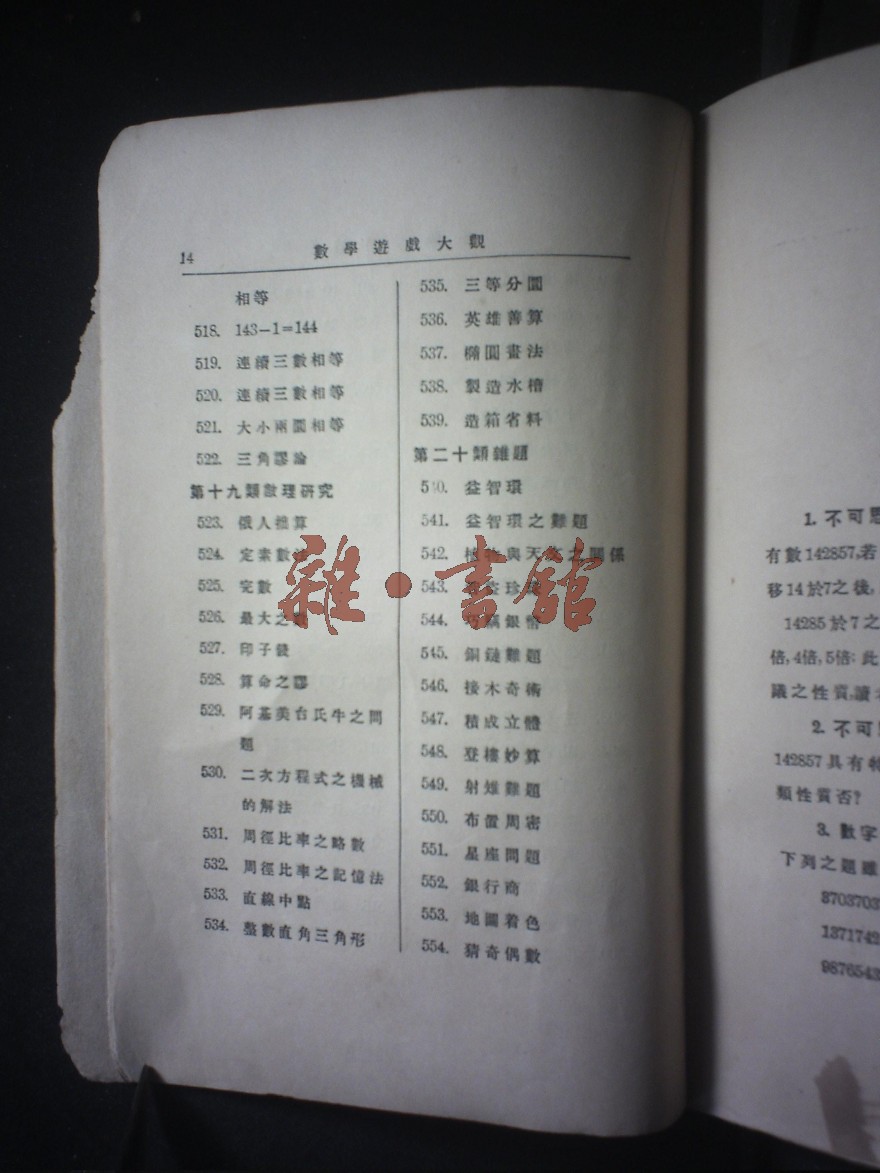 14
數學遊戲大觀
相等
518. 143-1=144
519. 連續三數相等
520. 連續三數相等
521. 大小兩圓相等
522. 三角謬論
第十九類數理研究
523. 俄人推算
524. 定素數法
525. 完數
526. 最大之數
527. 印子錢
528. 算命之謬
529. 阿基美台氏牛之問
題
530. 二次方程式之機械
的解法
531. 周徑比率之略數
532. 周徑比率之記憶法
533. 直線中點
534. 整數直角三角形
535. 三等分圓
536. 英雄善算
537. 橢圓畫法
538. 製造水槽
539. 造箱省料
第二十類雜題
540. 益智環
541. 益智環之難題
542. 與天之關係
543. 珍
544. 銀幣
545. 銅鏈難題
546. 接木奇術
547. 積成立體
548. 登樓妙算
549. 射雉難題
550. 布置周密
551. 星座問題
552. 銀行商
553. 地圖着色
554. 猜奇偶數
雜·書館
1. 不可思
有數142857,若
移14於7之後,
14285於7之
倍,4倍,5倍:此
議之性質,讀
2. 不可思
142857具有特
類性質否?
3. 數字
下列之題雖
3703703
1371742
9876543